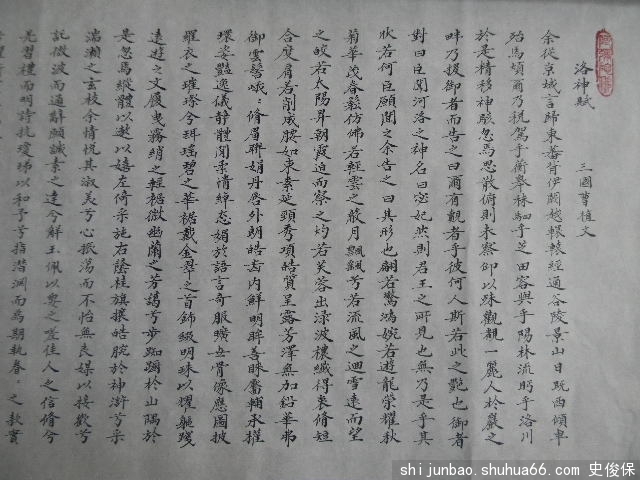 洛神賦
三國 曹植文
余從京域言歸東藩背伊闕越轘轅經通谷陵景山日既西傾車
殆馬煩爾乃稅駕乎蘅皋秣駟乎芝田容與乎陽林流眄乎洛川
於是精移神駭忽焉思散俯則未察仰以殊觀覩一麗人於巖之
畔乃援御者而告之曰爾有覿者乎彼何人斯若此之艷也御者
對曰臣聞河洛之神名曰宓妃然則君王之所見也無乃是乎其
狀若何臣願聞之余告之曰其形也翩若驚鴻婉若遊龍榮耀秋
菊華茂春松仿佛若輕雲之蔽月飄颻兮若流風之迴雪遠而望
之皎若太陽昇朝霞迫而察之灼若芙蓉出淥波穠纖得衷脩短
合度肩若削成腰如束素延頸秀項皓質呈露芳澤無加鉛華弗
御雲髻峨〻脩眉聯娟丹唇外朗皓齒內鮮明眸善睞靨輔承權
瓌姿艷逸儀靜體閑柔情綽態媚於語言奇服曠世骨像應圖披
羅衣之璀璨兮珥瑤碧之華裾戴金翠之首飾綴明珠以耀軀踐
遠遊之文履曳霧綃之輕裾微幽蘭之芳藹兮步踟躕於山隅於
是忽焉縱體以遨以嬉左倚采旄右蔭桂旗攘皓腕於神滸兮采
湍瀨之玄芝余情悅其淑美兮心振蕩而不怡無良媒以接歡兮
託微波而通辭願誠素之達兮解玉佩以要之嗟佳人之信脩兮
羌習禮而明詩抗瓊珶以和予兮指潛淵而為期執眷〻之款實
shijunbao.shuhua66.com 史俊保